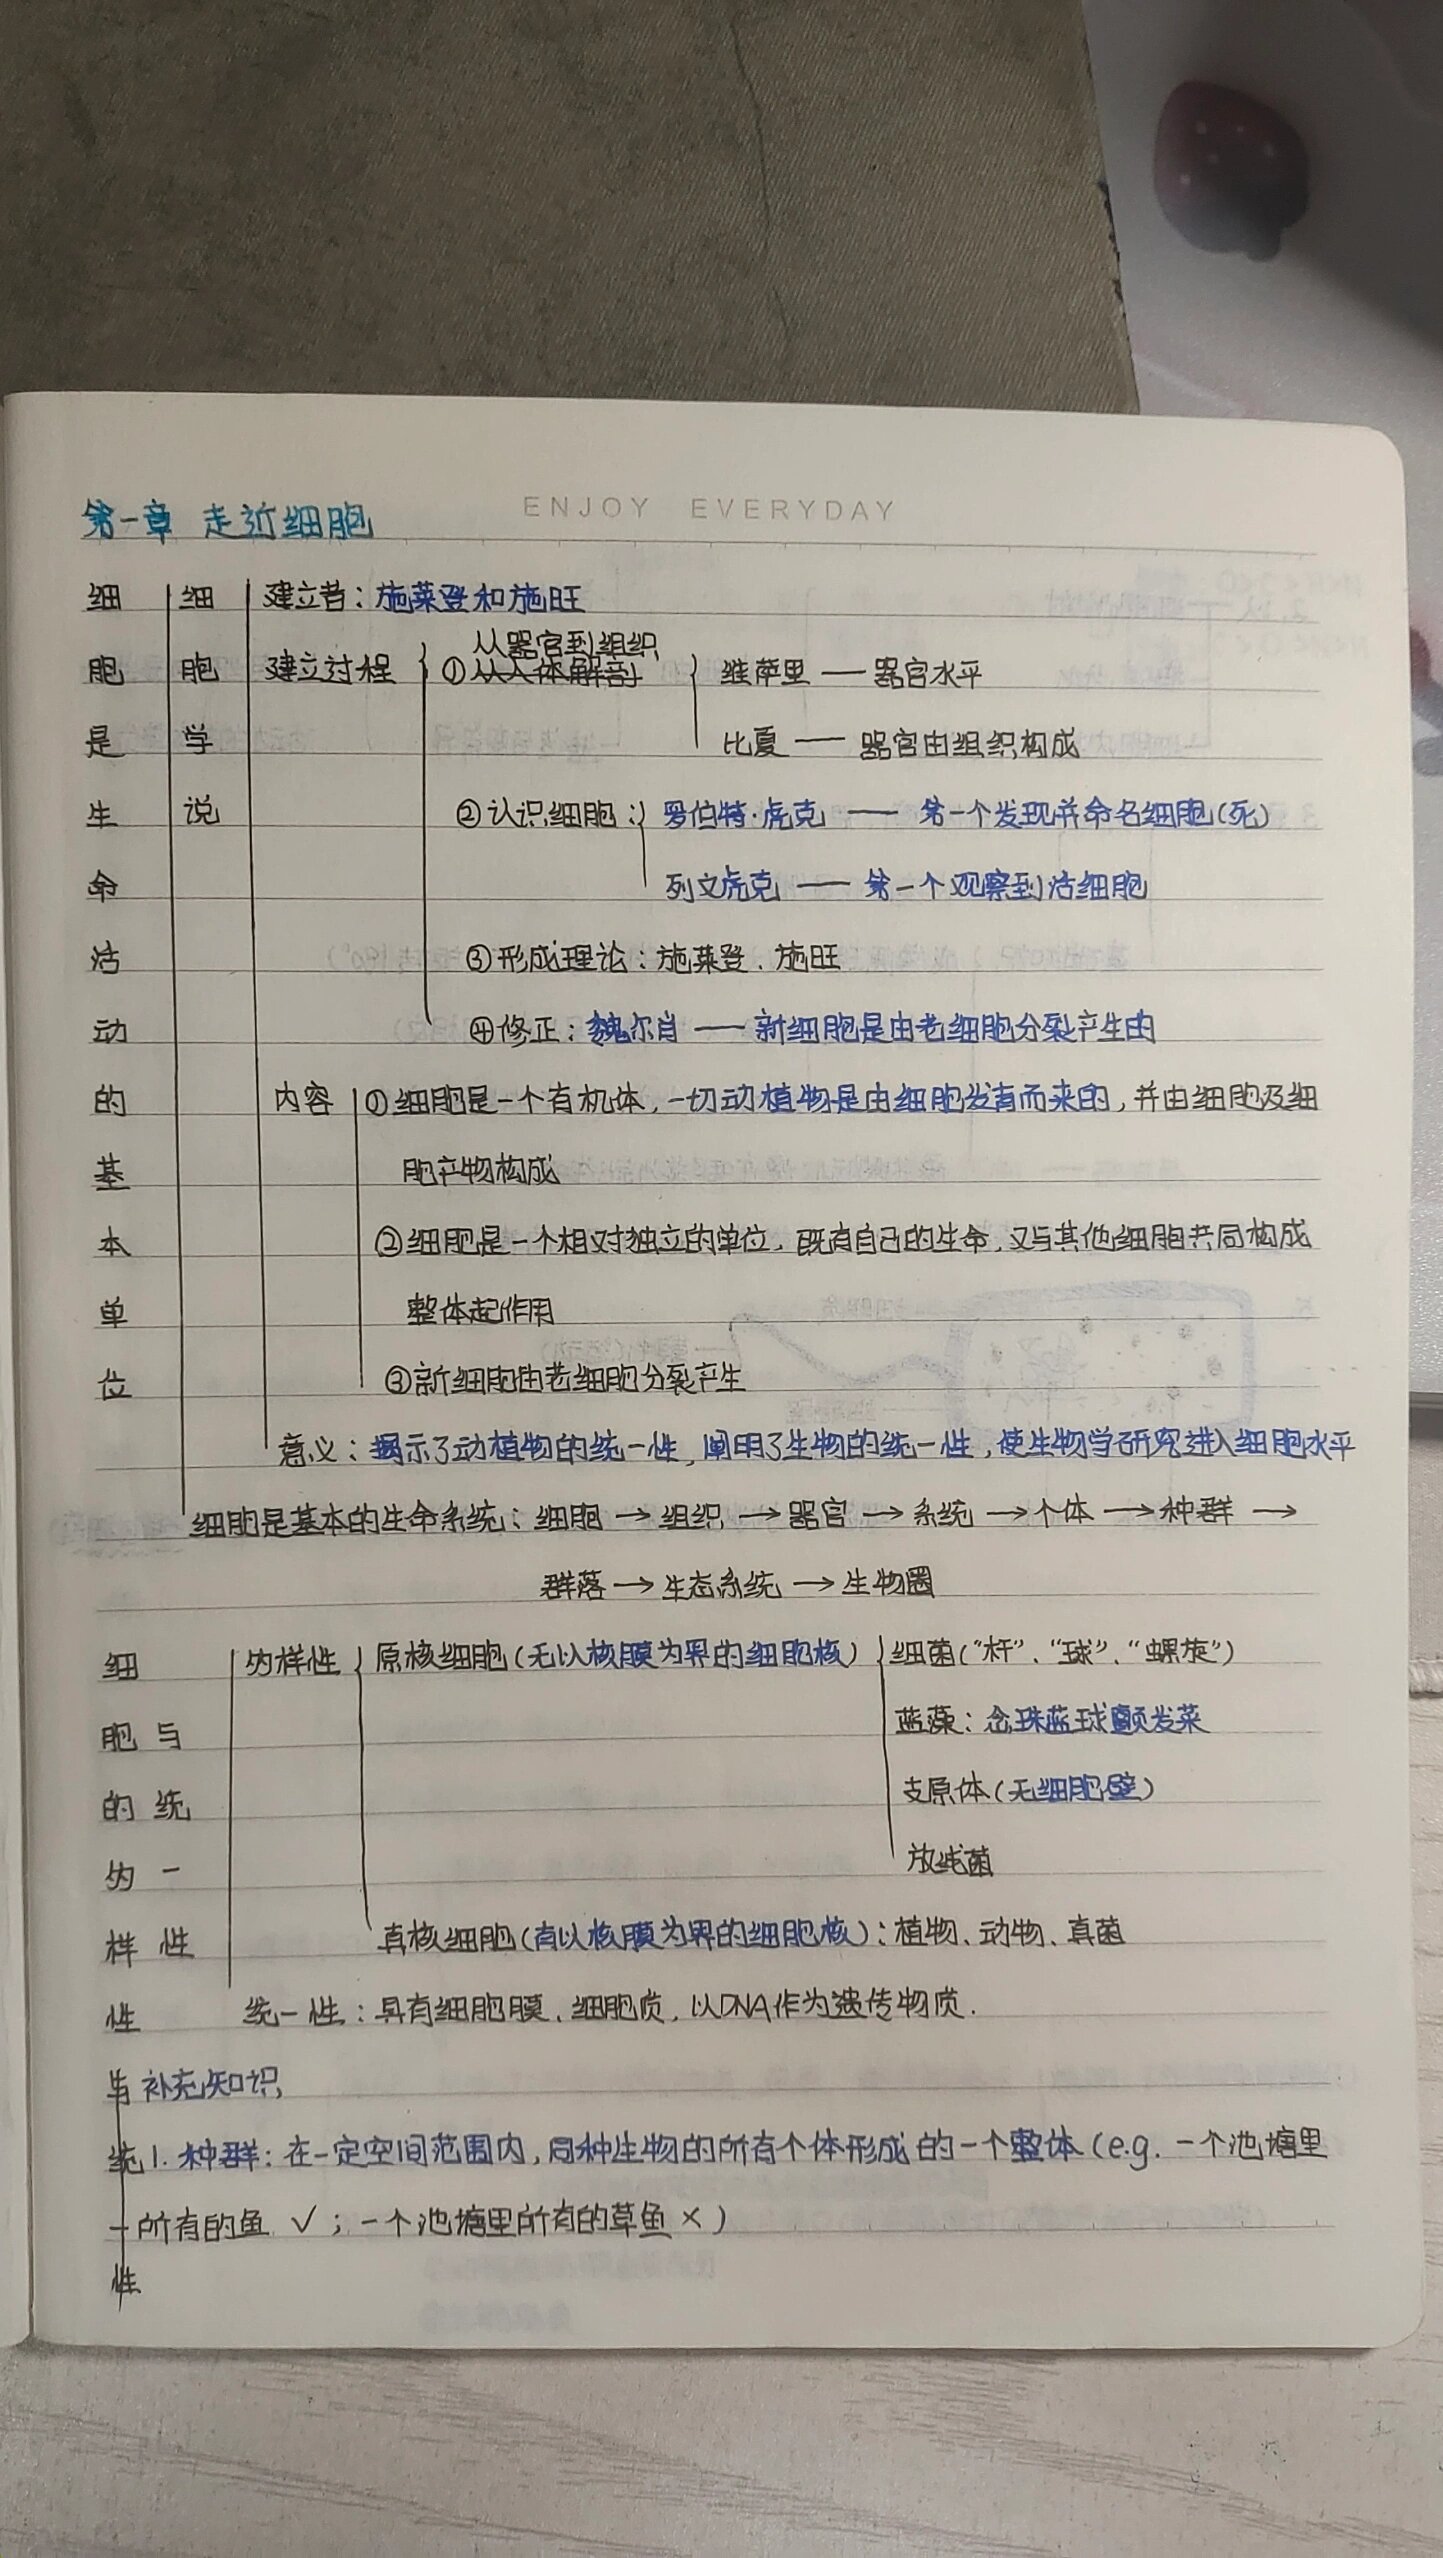 ENJOY EVERYDAY
第一章 走近细胞
细胞是生命活动的基本单位
细胞学说
建立者：施莱登和施旺
从器官到组织
建立过程 ①从人体解剖 维萨里 —— 器官水平
比夏 —— 器官由组织构成
②认识细胞：罗伯特·虎克 —— 第一个发现并命名细胞(死)
列文虎克 —— 第一个观察到活细胞
③形成理论：施莱登、施旺
④修正：魏尔肖 —— 新细胞是由老细胞分裂产生的
内容 ①细胞是一个有机体，一切动植物是由细胞发育而来的，并由细胞及细
胞产物构成
②细胞是一个相对独立的单位，既有自己的生命，又与其他细胞共同构成
整体起作用
③新细胞由老细胞分裂产生
意义：揭示了动植物的统一性，阐明了生物的统一性，使生物学研究进入细胞水平
细胞是基本的生命系统：细胞 → 组织 → 器官 → 系统 → 个体 → 种群 →
群落 → 生态系统 → 生物圈
细胞的多样性与统一性
多样性 原核细胞(无以核膜为界的细胞核) 细菌("杆"、"球"、"螺旋")
蓝藻：念珠蓝球颤发菜
支原体(无细胞壁)
放线菌
真核细胞(有以核膜为界的细胞核)：植物、动物、真菌
统一性：具有细胞膜、细胞质，以DNA作为遗传物质.
与 补充知识
统 1. 种群：在一定空间范围内，同种生物的所有个体形成的一个整体(e.g. 一个池塘里
一 所有的鱼 √；一个池塘里所有的草鱼 ×)
性